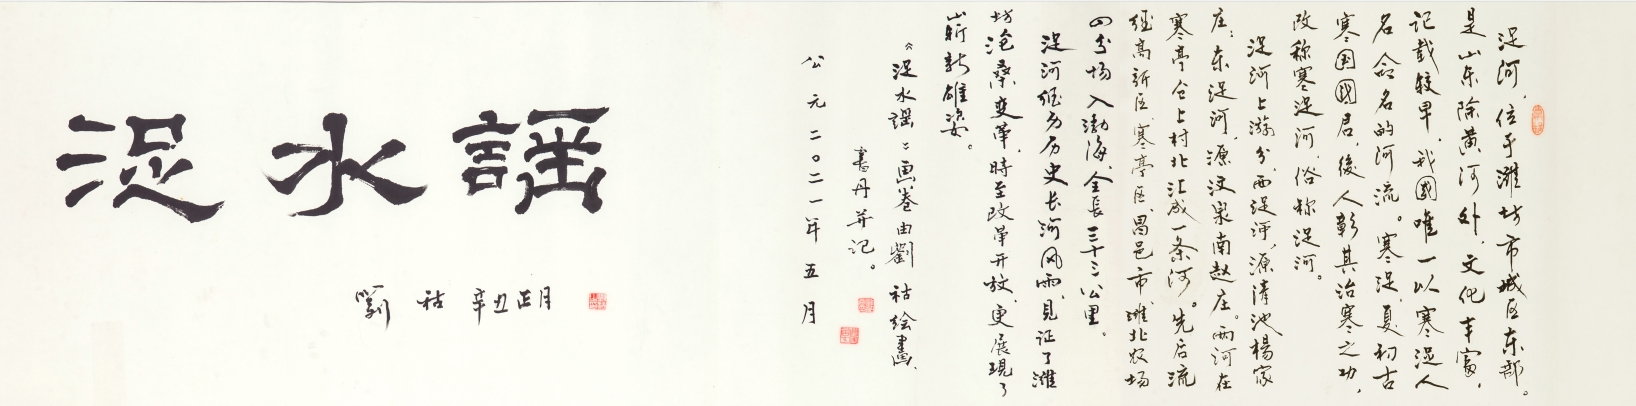 浞水謡
劉祜 辛丑正月
浞河，位于潍坊市城区东部。
是山东除黄河外，文化丰富，
记载较早，我國唯一以寒浞人
名命名的河流。寒浞，夏初古
寒国國君，後人彰其治寒之功，
改称寒浞河，俗称浞河。
浞河上游分西浞河，源清池楊家
庄；东浞河，源汶泉南赵庄。两河在
寒亭仓上村北汇成一条河。先后流
经高新区、寒亭区、昌邑市、潍北农场
四分场入渤海，全長三十三公里。
浞河经历史长河风雨，見证了潍
坊沧桑变革，時至改革开放，更展現了
崭新雄姿。
《浞水謡》画卷由劉祜绘畫，
書丹并记。
公元二〇二一年五月